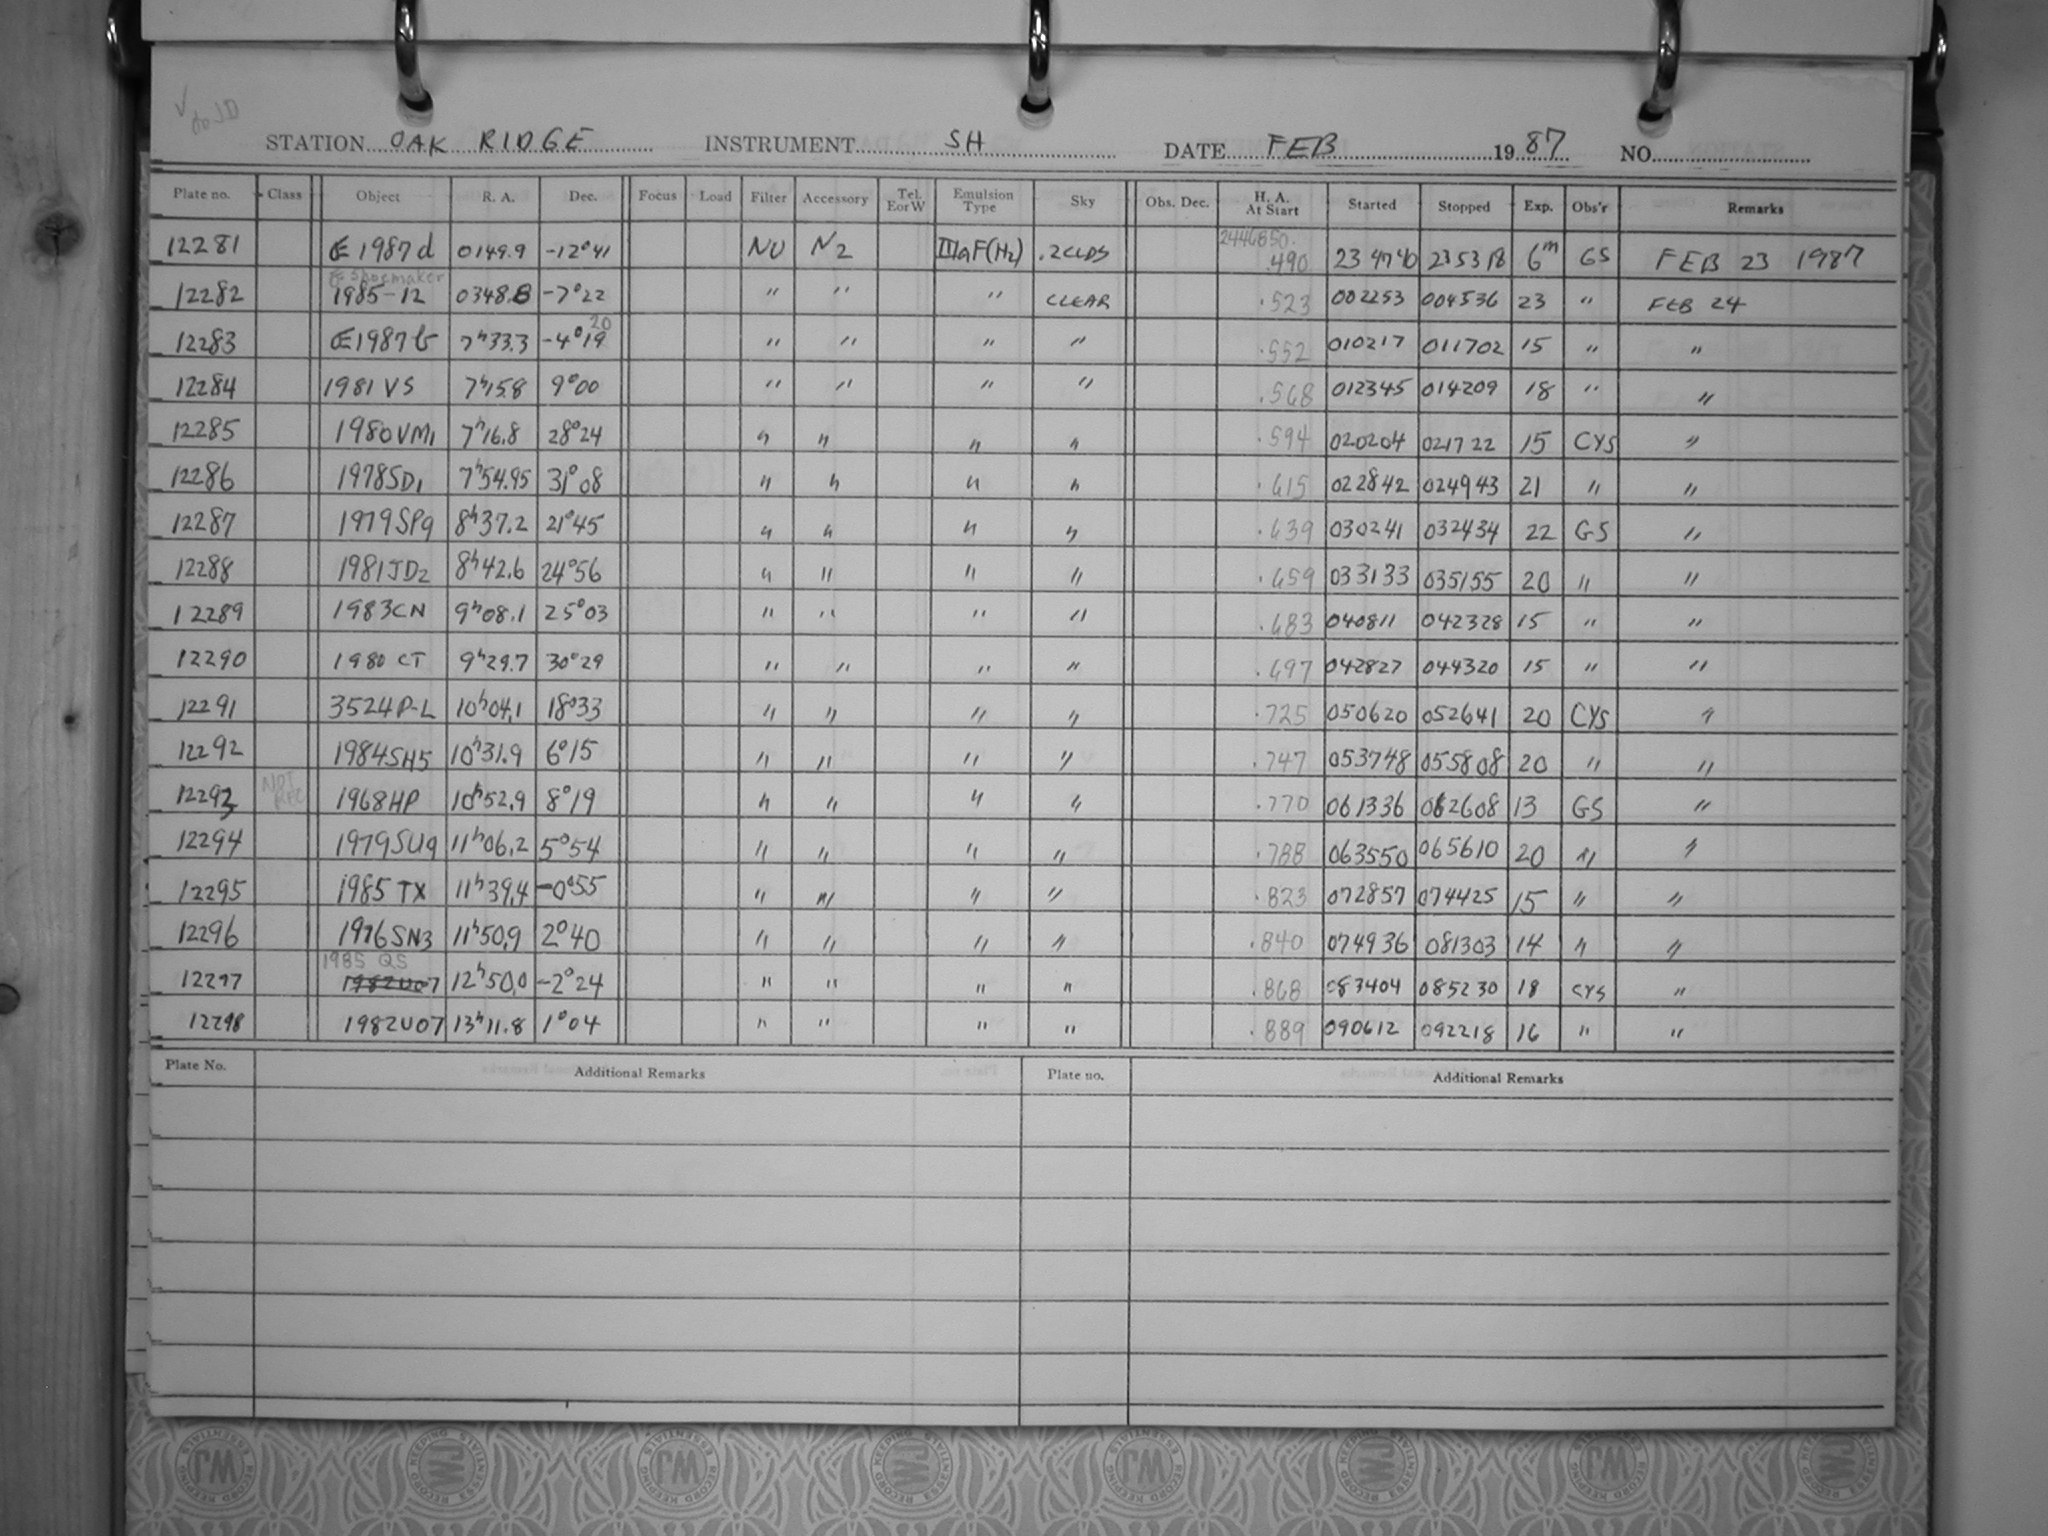 √ to JD
STATION OAK RIDGE INSTRUMENT SH DATE FEB 1987 NO.
Plate no. Class Object R. A. Dec. Focus Load Filter Accessory Tel. E or W Emulsion Type Sky Obs. Dec. H. A. At Start Started Stopped Exp. Obs'r Remarks
12281 1987d 0149.9 -12°41 NO N2 IIIaF(H2) .2CLDS 2446850. .490 6m GS FEB 23 1987
Shoemaker
12282 1985-12 0348.8 -7°22 " " " CLEAR .523 002253 004536 23 " FEB 24
20
12283 1987b 7h33.3 -4°19 " " " " .552 010217 011702 15 " "
12284 1981 VS 7h15.8 9°00 " " " " .568 012345 014209 18 " "
12285 1980VM1 7h16.8 28°24 " " " " .594 020204 021722 15 CYS "
12286 1978SD1 7h54.95 31°08 " " " " .615 022842 024943 21 " "
12287 1979SP9 8h37.2 21°45 " " " " .639 030241 032434 22 GS "
12288 1981JD2 8h42.6 24°56 " " " " .659 033133 035155 20 " "
12289 1983CN 9h08.1 25°03 " " " " .683 040811 042328 15 " "
12290 1980 CT 9h29.7 30°29 " " " " .697 042827 044320 15 " "
12291 3524P-L 10h04.1 18°33 " " " " .725 050620 052641 20 CYS "
12292 1984SH5 10h31.9 6°15 " " " " .747 053748 055808 20 " "
12293 NOT REC 1968HP 10h52.9 8°19 " " " " .770 061336 062608 13 GS "
12294 1979SU9 11h06.2 5°54 " " " " .788 063550 065610 20 " "
12295 1985 TX 11h39.4 -0°55 " " " " .823 072857 074425 15 " "
12296 1976SN3 11h50.9 2°40 " " " " .840 074936 081303 14 " "
1985 QS
12297 1982UO7 12h50.0 -2°24 " " " " .868 083404 085230 18 CYS "
12298 1982UO7 13h11.8 1°04 " " " " .889 090612 092218 16 " "
Plate No. Additional Remarks Plate no. Additional Remarks
JW RECORD KEEPING ESSENTIALS